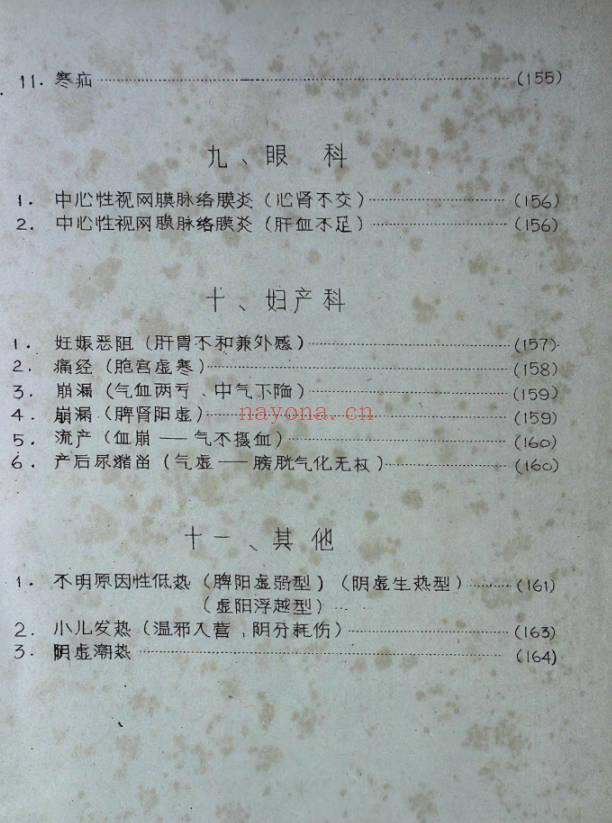 11. 寒疝 (155)
九、眼 科
1. 中心性视网膜脉络膜炎(心肾不交) (156)
2. 中心性视网膜脉络膜炎(肝血不足) (156)
十、妇产科
1. 妊娠恶阻(肝胃不和兼外感) (157)
2. 痛经(胞宫虚寒) (158)
3. 崩漏(气血两亏、中气下陷) (159)
4. 崩漏(脾肾阳虚) (159)
nayona.cn
5. 流产(血崩——气不摄血) (160)
6. 产后尿潴留(气虚——膀胱气化无权) (160)
十一、其他
1. 不明原因性低热(脾阳虚弱型)(阴虚生热型) (161)
(虚阳浮越型)
2. 小儿发热(温邪入营,阴分耗伤) (163)
3. 阴虚潮热 (164)